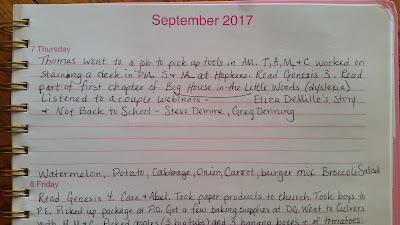 September 2017
7 Thursday
Thomas went to a job to pick up tools in AM. T, A, M, + C worked on
staining a deck in P.M. S + M at Hopkins. Read Genesis 3. Read
part of first chapter of Big House in the Little Woods (dyslexia)
Listened to a couple webinars - Eliza DeMille's Story
+ Not Back to School - Steve Demme, Greg Denning
Watermelon, Potato, Cabbage, Onion, Carrot, burger mix Broccoli Salad
8 Friday
Read Genesis 4. Cain + Abel. Took paper products to church. Took boys to
P.E. Picked up package at P.O. Got a few baking supplies at DG. Went to Culvers
with M, M + C. Picked apples (3 big tubs) and 3 banana boxes + of tomatoes.